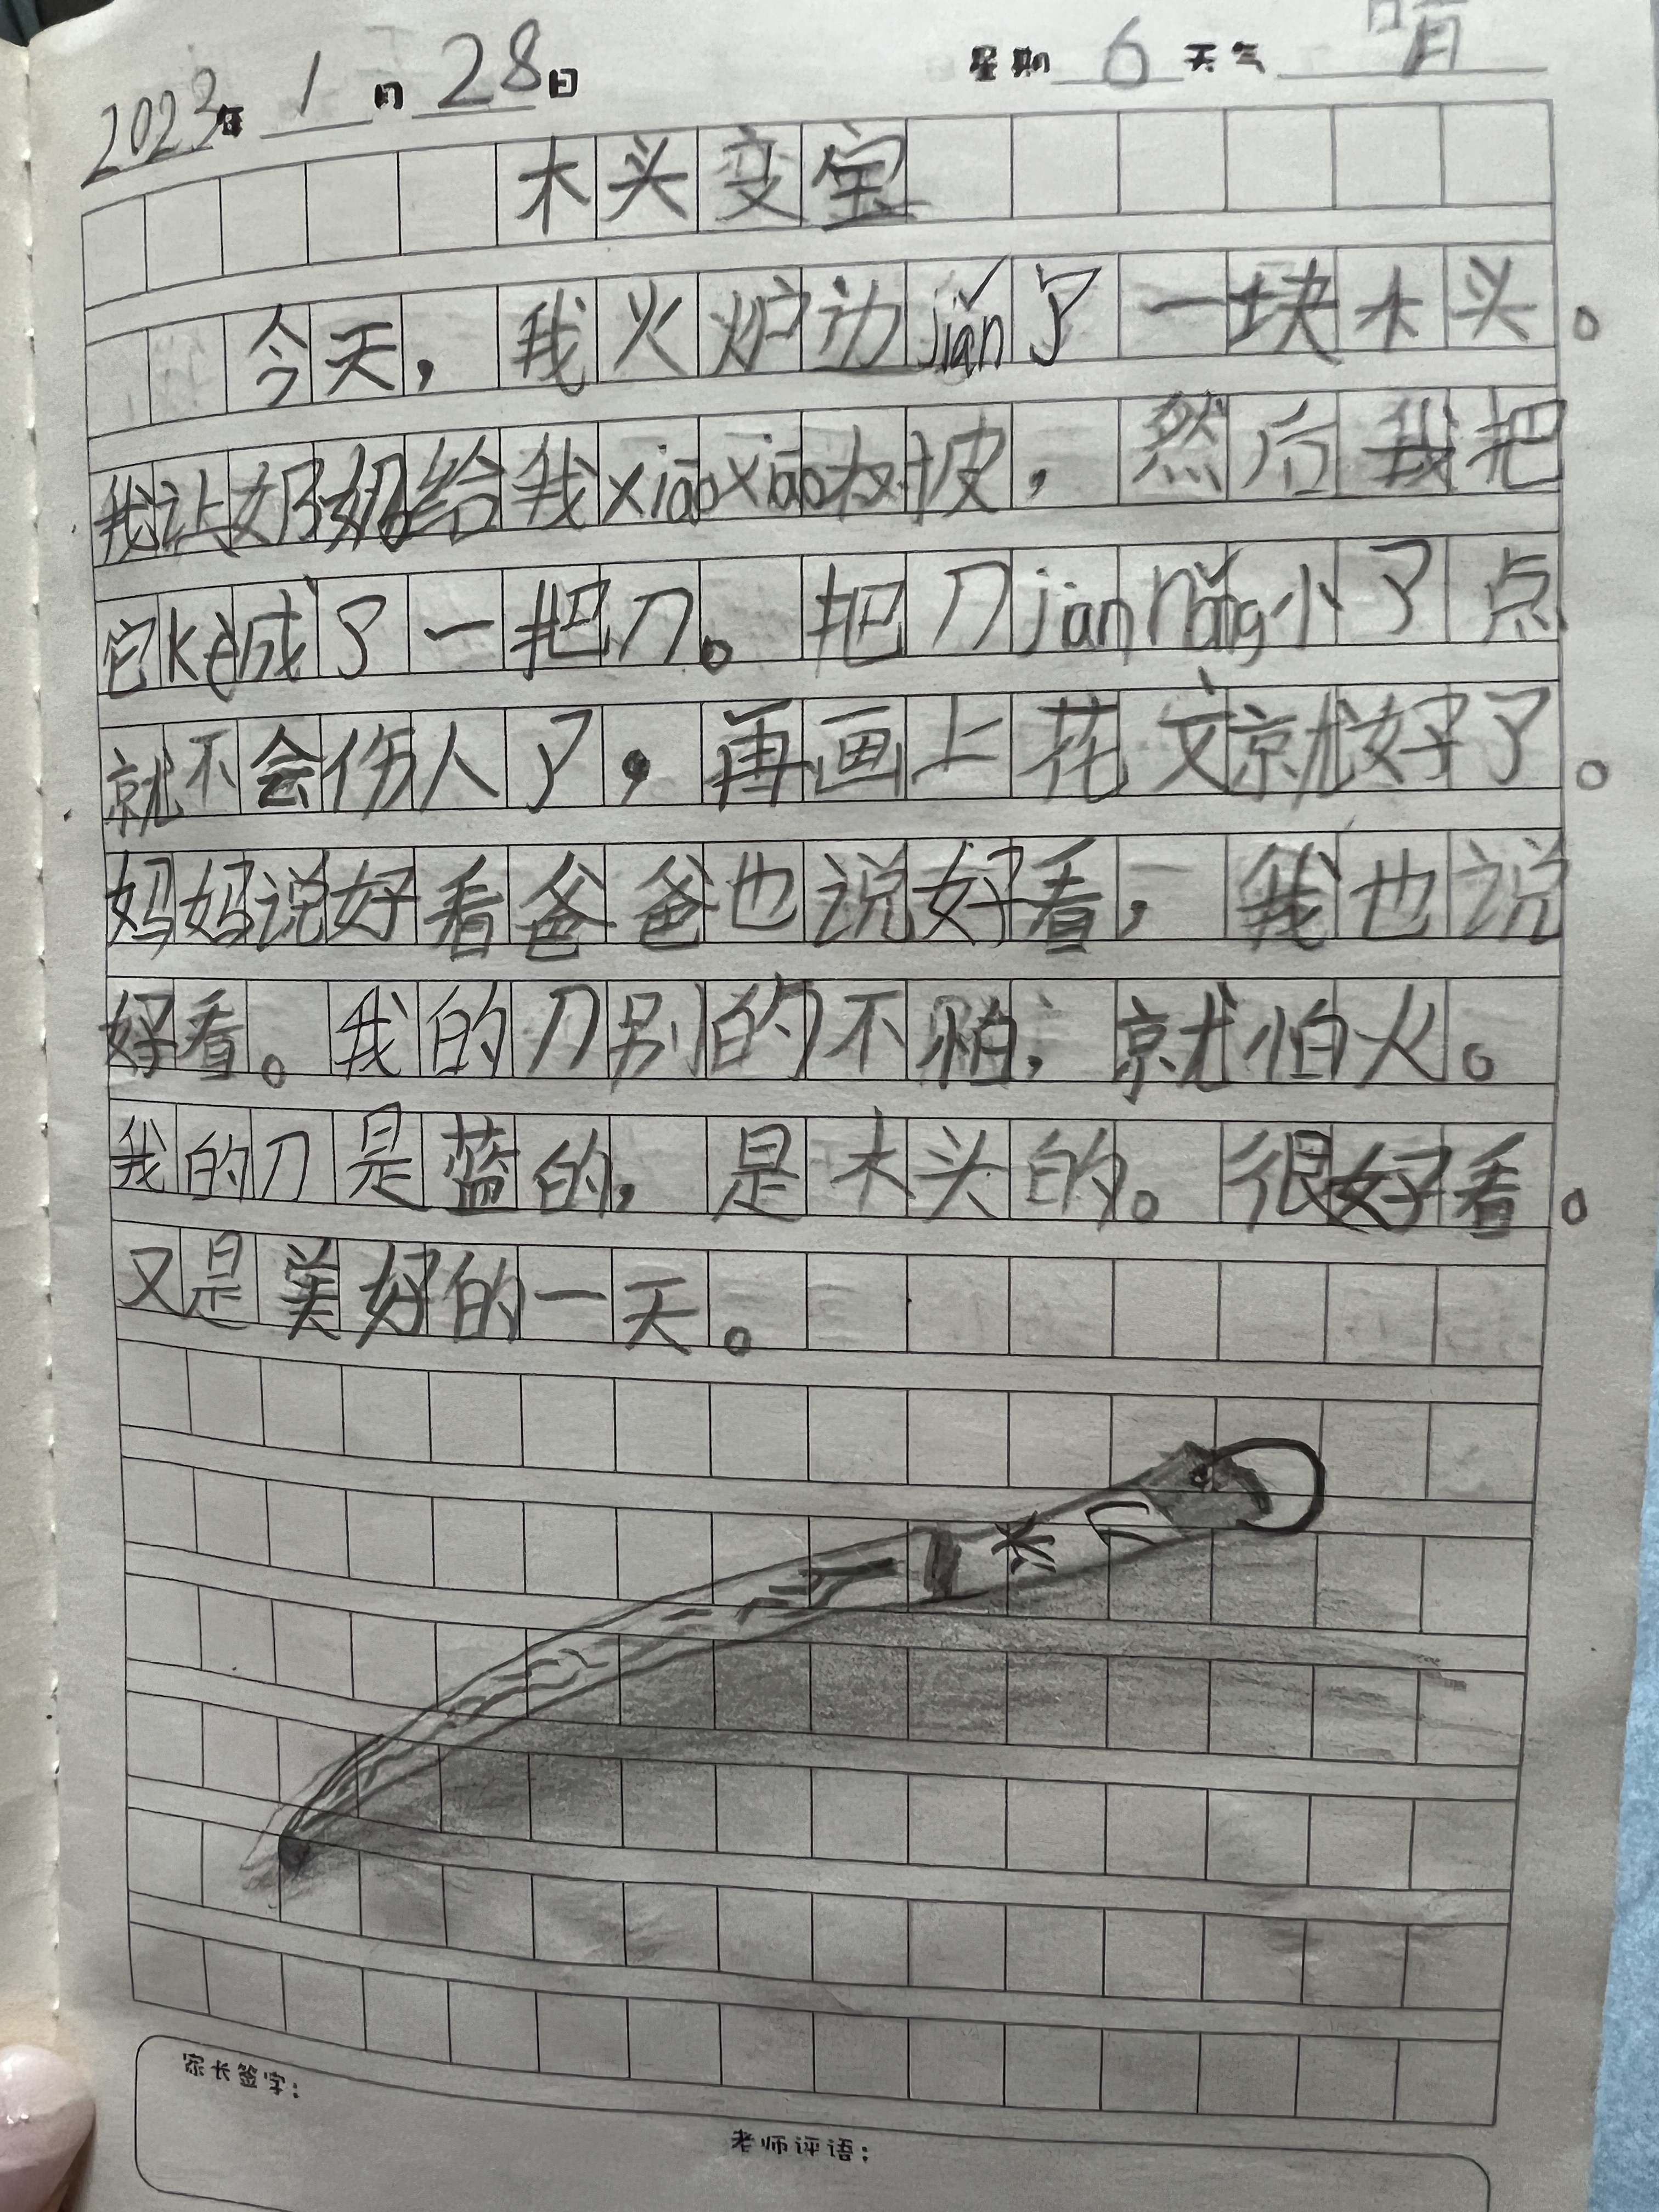 2023年 1 月 28 日 星期 6 天气 晴
木头变宝
今天，我火炉边jiǎn了一块木头。
我让奶奶给我xiāoxiāo树皮，然后我把
它kè成了一把刀。把刀jiān nòng小了点
就不会伤人了，再画上花文就好了。
妈妈说好看爸爸也说好看，我也说
好看。我的刀别的不怕，就怕火。
我的刀是蓝的，是木头的。很好看。
又是美好的一天。
家长签字：
老师评语：